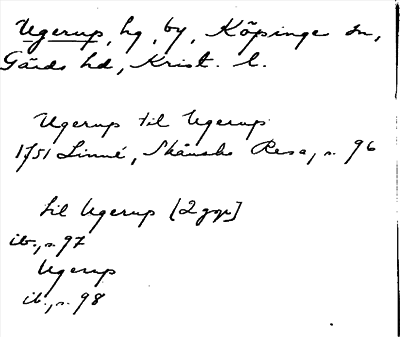 Ugerup, hg, by, Köpinge sn,
Gärds hd, Krist. l.
Ugerup til Ugerup
1751 Linné, Skånska Resa, s. 96
til Ugerup [2 ggr]
ib., s. 97
Ugerup
ib., s. 98